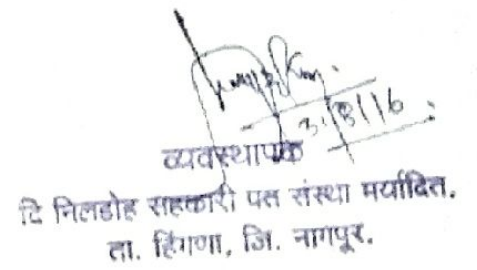 3/8/16
व्यवस्थापक
दि निलडोह सहकारी पत संस्था मर्यादित.
ता. हिंगणा, जि. नागपूर.